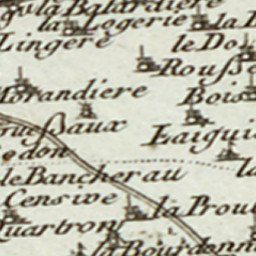 la Balardiere
la Logerie
la
Lingere
le Do
Rouß
Morandiere
Bois
ßaux
Laigui
le Bancherau
la
Censive
la Prou
Quartron
la Bourdonn